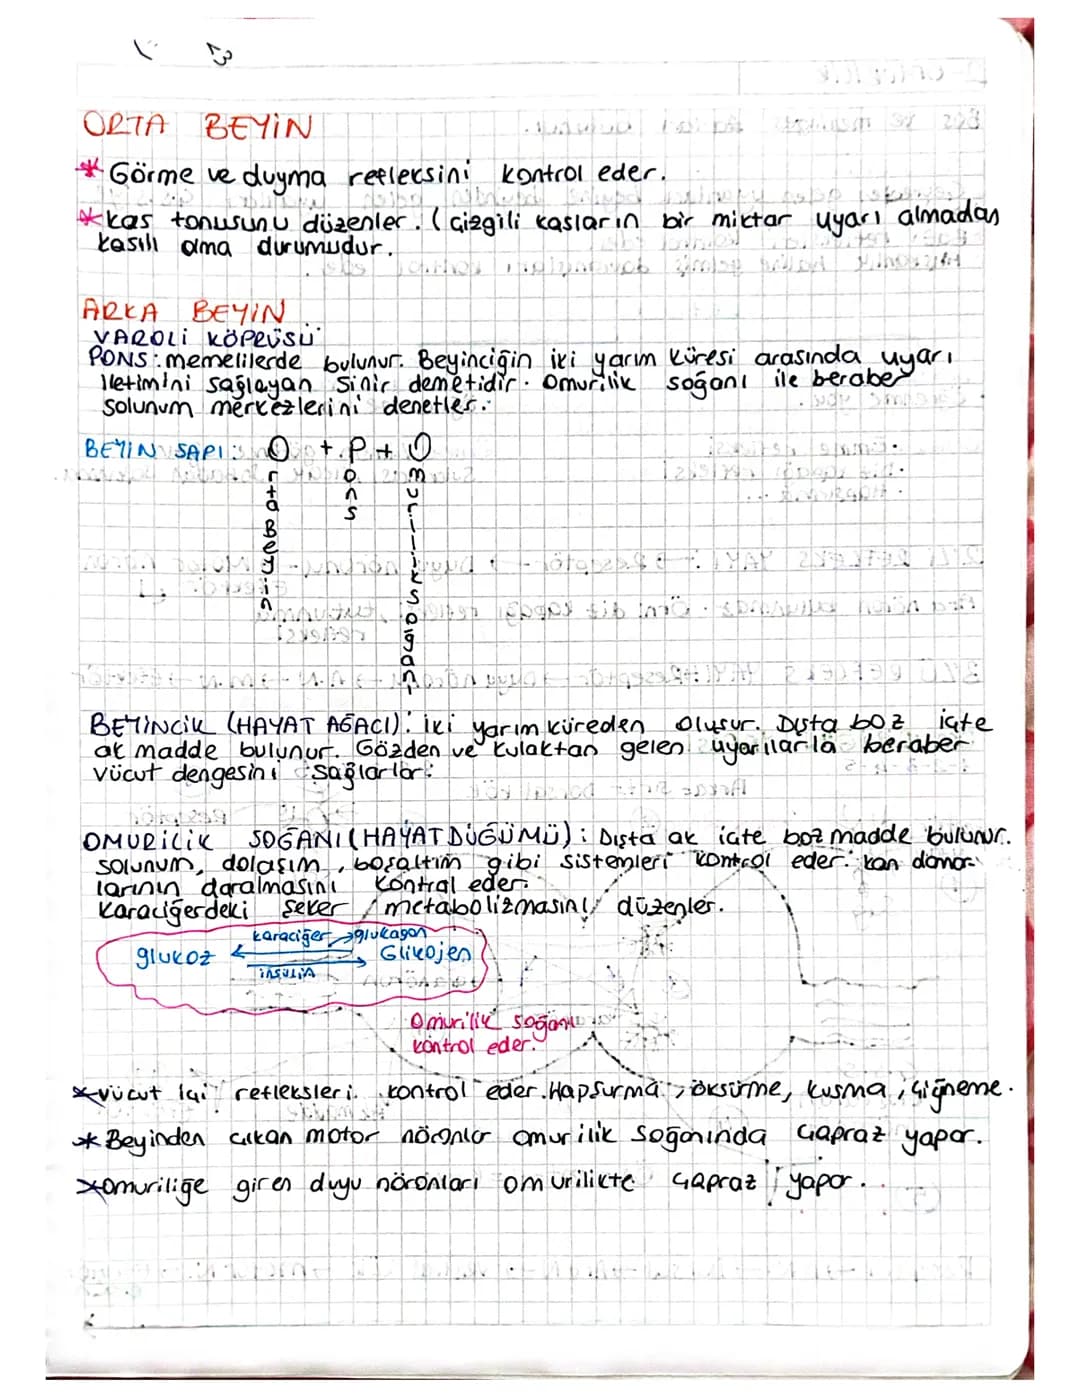 ORTA BEYİN
* Görme ve duyma refleksini kontrol eder.
* kas tonusunu düzenler. ( Çizgili kasların bir miktar uyarı almadan
kasılı olma durumudur.
ARKA BEYİN
VAROLİ KÖPRÜSÜ
PONS: memelilerde bulunur. Beyinciğin iki yarım küresi arasında uyarı
iletimini sağlayan sinir demetidir. Omurilik soğanı ile beraber
solunum merkezlerini denetler.
BEYİN SAPI: O + P + O
Orta Beyin
Pons
Omurilik soğanı
BEYİNCİK (HAYAT AĞACI): iki yarım küreden oluşur. Dışta boz içte
ak madde bulunur. Gözden ve kulaktan gelen uyarılarla beraber
vücut dengesini sağlarlar.
OMURİLİK SOĞANI (HAYAT DÜĞÜMÜ): Dışta ak içte boz madde bulunur.
solunum, dolaşım, boşaltım gibi sistemleri kontrol eder. kan damar-
larının daralmasını kontrol eder.
Karaciğerdeki şeker metabolizmasını düzenler.
karaciğer → glukagon
glukoz Glikojen
insulin
Omurilik soğanı
kontrol eder.
* vücut içi refleksleri kontrol eder. Hapşurma, öksürme, kusma, çiğneme.
* Beyinden çıkan motor nöronlar omurilik soğanında çapraz yapar.
* omuriliğe giren duyu nöronları omurilikte çapraz yapar.